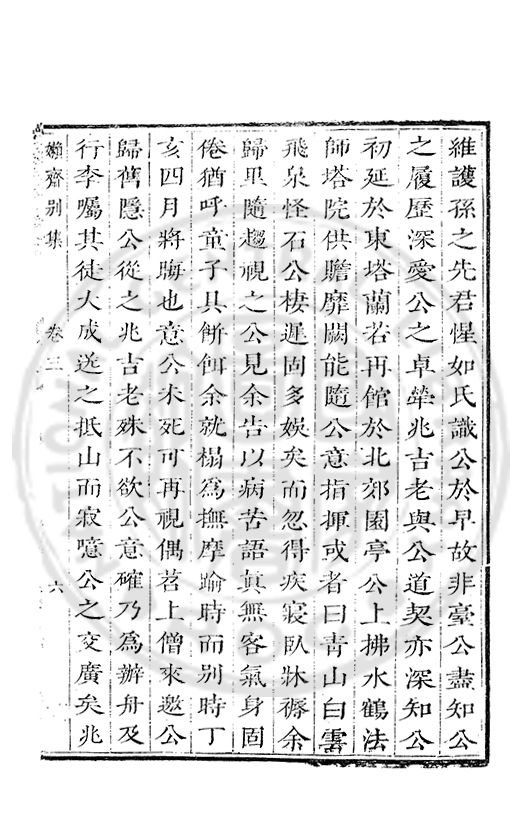 維護孫之先君惺如氏識公於早故非臺公盡知公
之履歷深愛公之卓犖兆吉老與公道契亦深知公
初延於東塔蘭若再館於北郊園亭公上拂水鶴法
師塔院供贍靡闕能隨公意指揮或者曰青山白雲
飛泉怪石公棲遲固多娛矣而忽得疾寢臥牀褥余
歸里隨趨視之公見余告以病苦語眞無客氣身固
倦猶呼童子具餅餌余就榻為撫摩踰時而别時丁
亥四月將晦也意公未死可再視偶苕上僧來邀公
歸舊隱公從之兆吉老殊不欲公意確乃為辦舟及
行李囑其徒大成送之抵山而寂噫公之交廣矣兆
嬾齋别集
卷三
六